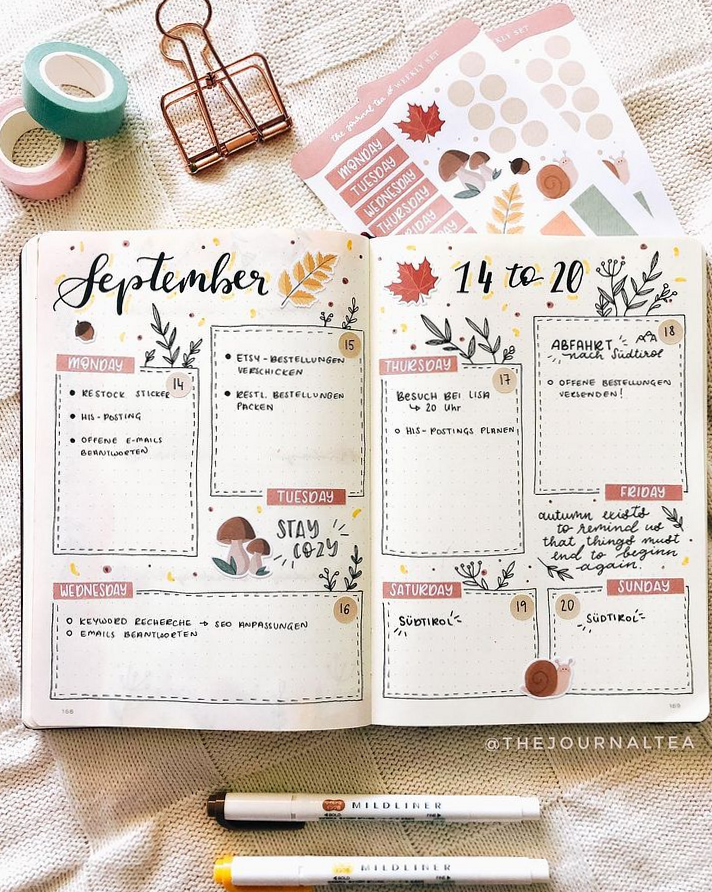 the journal tea WEEKLY SET
WEEKLY SET
MONDAY
TUESDAY
WEDNESDAY
THURSDAY
FRIDAY
September
14 to 20
MONDAY
14
● RESTOCK STICKER
● HIS-POSTING
● OFFENE E-MAILS
BEANTWORTEN
15
● ETSY-BESTELLUNGEN
VERSCHICKEN
● RESTL. BESTELLUNGEN
PACKEN
TUESDAY
STAY
COZY
WEDNESDAY
16
○ KEYWORD RECHERCHE → SEO ANPASSUNGEN
○ EMAILS BEANTWORTEN
168
THURSDAY
17
BESUCH BEI LISA
↳ 20 Uhr
○ HIS-POSTINGS PLANEN
18
ABFAHRT
nach Südtirol
○ OFFENE BESTELLUNGEN
VERSENDEN!
FRIDAY
autumn exists
to remind us
that things must
end to beginn
again.
SATURDAY
19
SÜDTIROL
SUNDAY
20
SÜDTIROL
169
@THEJOURNALTEA
MILDLINER
BOLD
FINE
MILDLINER
BOLD
FINE